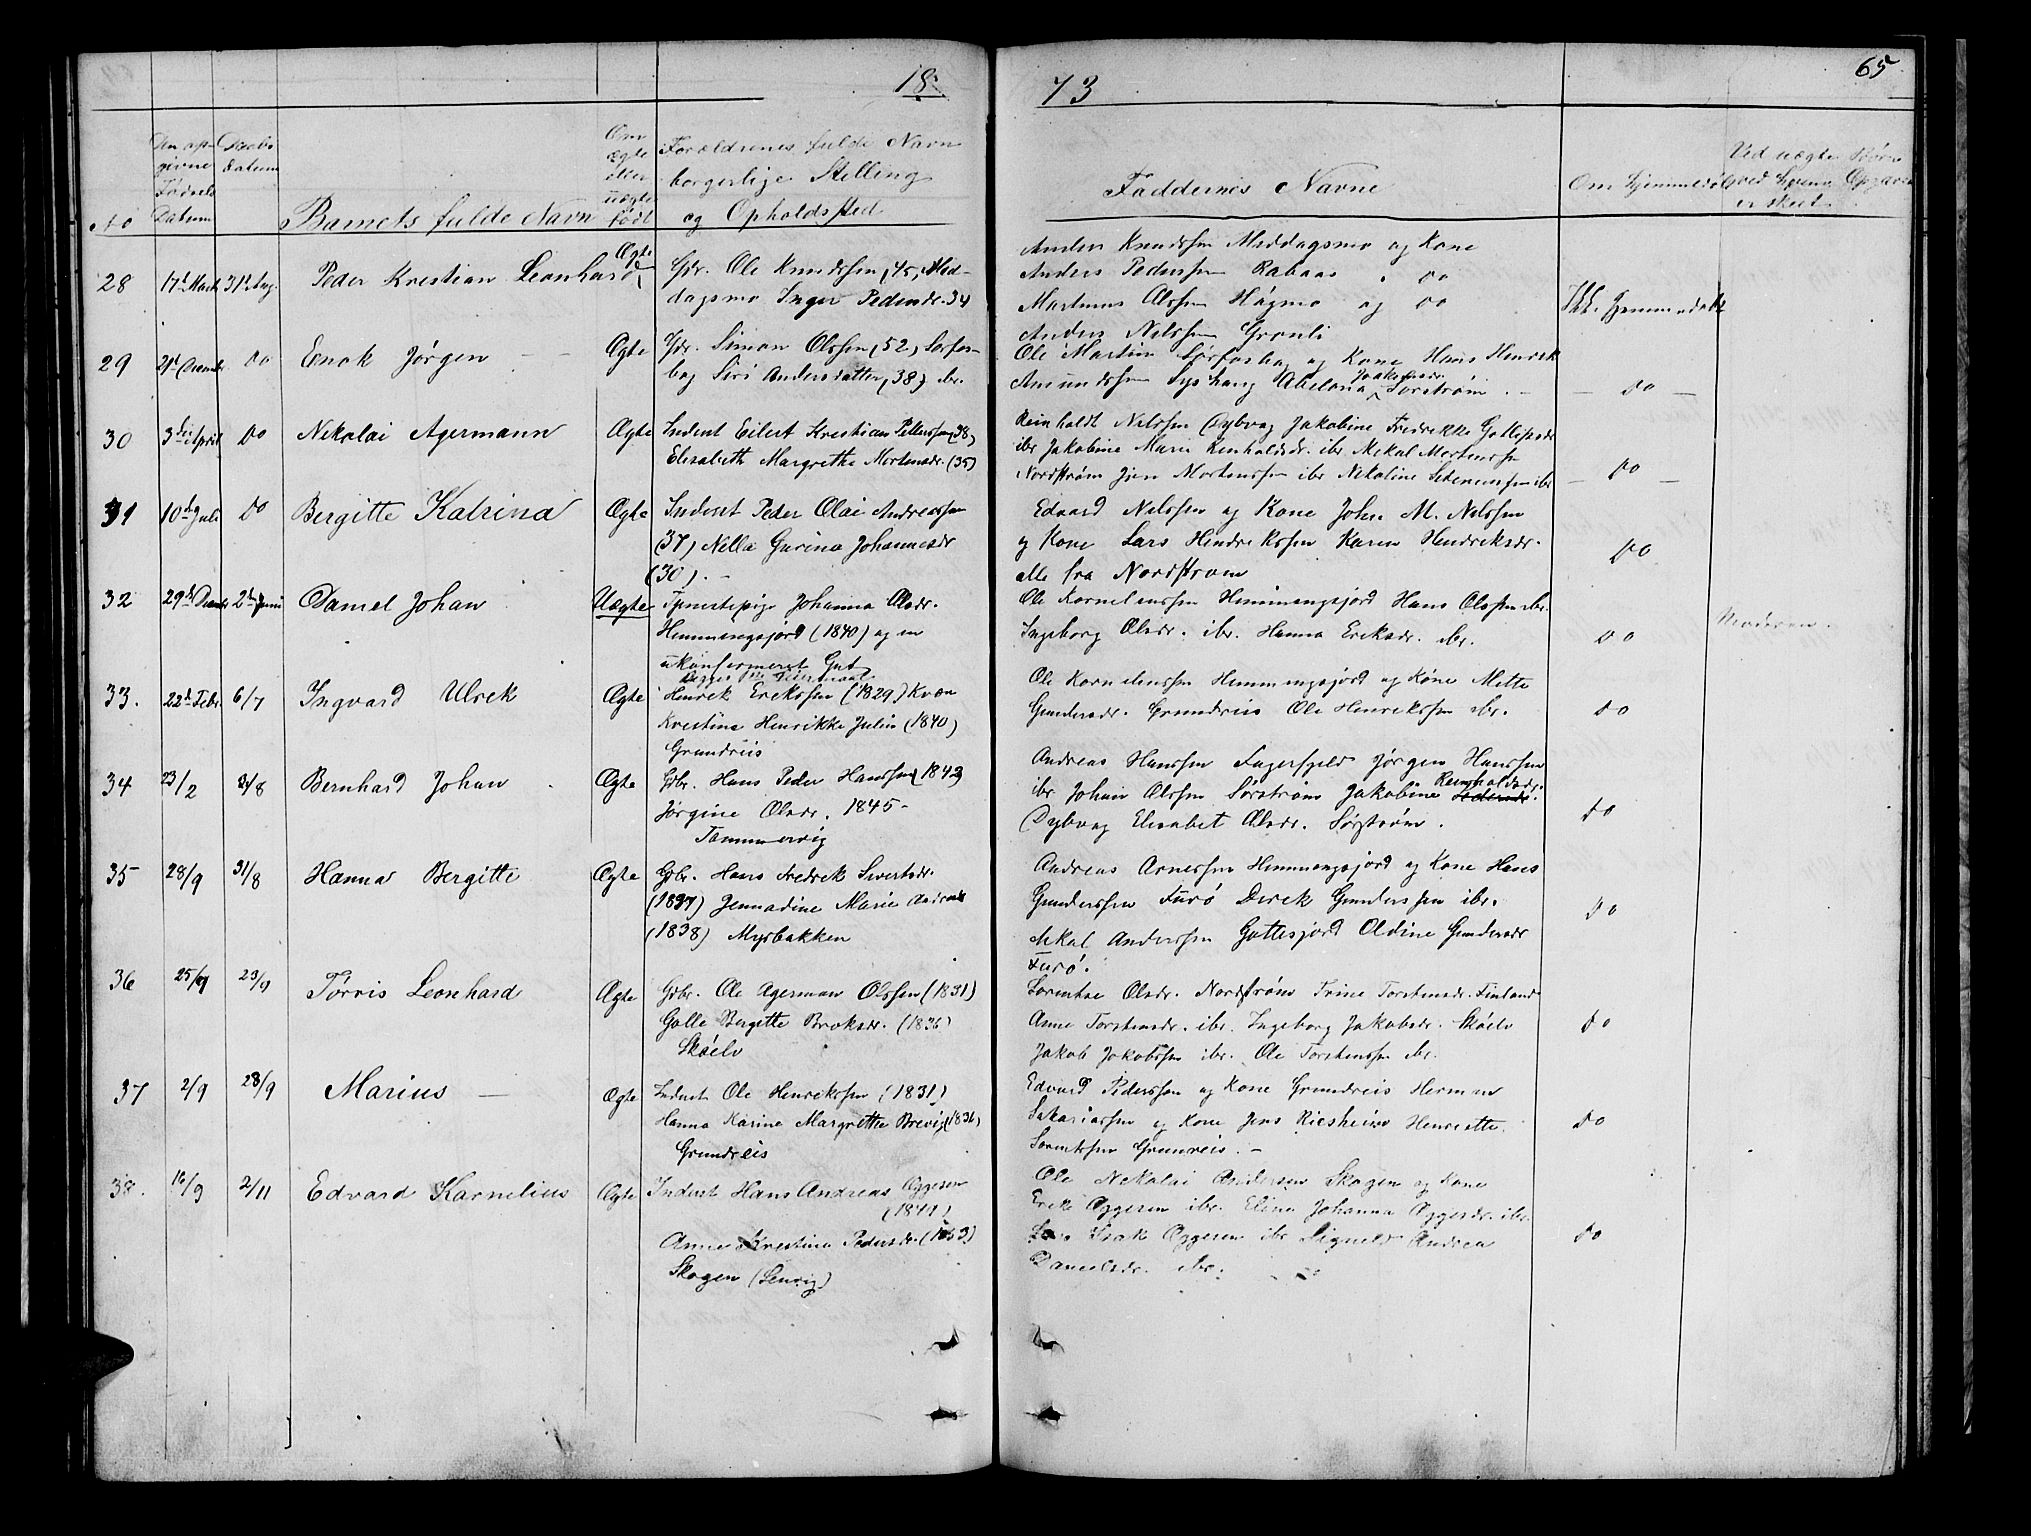 18
73
65
No
Den op-
givne
Fødsels
Datum
Daabs
datum
Barnets fulde Navn
Om
ægte
eller
uægte
født
Forældrenes fulde Navn
borgerlige Stilling
og Opholdssted
Faddernes Navne
Om hjemmedøbt
Ved uægte Børn
ved hvem Opgaven
er skeet.
28
17de Marts
31te Aug.
Peder Kristian Leonhard
Ægte
Gbr. Ole Knudssen (45) Mid-
dagsmo Inger Pedersdr. 34
Anders Knudssen Middagsmo og Kone
Anders Pederssen Rabaas " do
Martinus Olssen Høgmo og do
Anders Nilssen Grønli
Ikke hjemmedøbt
29
do
Enok Jørgen
Ægte
Gbr. Simon Olssen (52) Sørfor-
bag Siri Andersdatter (38) ibr.
Ole Martin Sørforbag og Kone Hans Henrik
Amundssen Abelona Sørstrøm. -
do
30
3die April
do
Nikolai Agermann
Ægte
Inderst Eilert Kristian Pettersen (38)
Elisabeth Margrethe Mortensdr. (35)
Reinholdt Nilssen Dybvag Jakobine Fredrikke
ibr Jakobine Marie Reinholdsdr. ibr. Mikal Mortenssen
Nordstrøm Jens Mortenssen ibr Nikoline ibr
do
31
10de Juli
do
Bergitte Katrina
Ægte
Inderst Peder Olai Andreassen
(37) Nella Gurina Johannesdr
(30). -
Edvard Nilssen og Kone John M. Nilssen
og Kone Lars Hendrikssen Karen Hendriksdr.
alle fra Nordstrøm
do
32
29de
2den Juni
Daniel Johan
Uægte
Tjenestepige Johanna Olsdr.
Hemmingsjord (1840) og en
ukonfirmeret Gut
Ole Kornelius sen Hemmingsjord Hans Olssen ibr.
Ingeborg Olsdr. ibr. Hanna Eriksdr. ibr.
do
Moderen.
33.
22de Febr.
6/7
Ingvard Ulrik
Ægte
Henrik Erikssen (1829) Kvæn
Kristina Henrikke Julin (1840)
Grundreis
Ole Korneliussen Hemmingsjord og Kone Mette
Gundersdr. Grundreis Ole Henrikssen ibr.
do
34
23/2
31/8
Bernhard Johan
Ægte
Gbr. Hans Peder Hanssen (1842)
Jørgine Olsdr. 1845 -
Tømmervig
Andreas Hanssen Fagerfjeld Jørgen Hanssen
ibr Johan Olssen Sørstrøm Jakobine Reinholdsdr.
Dybvag Elisabet Olsdr. Sørstrøm.
do
35
28/9
31/8
Hanna Bergitte
Ægte
Gbr. Hans Fredrik Sivertsdr.
(1837) Jennadine Marie Andreasdr
(1838) Myrbakken
Andreas Arnessen Hemmingsjord og Kone Hans
Gunderssen Furø Derek Gunderssen ibr.
Mikal Anderssen Gottesjord Oldine Gundersdr
Furø.
do
36
25/9
23/9
Tørris Leonhard
Ægte
Gbr. Ole Agerman Olssen (1831)
Golle Bergitte Broksdr. (1836)
Skøelv
Lorentse Olsdr. Nordstrøm Trine Torstensdr. Finland
Anne Torstensdr. ibr. Ingeborg Jakobsdr. Skøelv
Jakob Jakobssen ibr. Ole Torstenssen ibr.
do
37
2/9
28/9
Marius
Ægte
Inderst Ole Henrikssen (1831)
Hanna Karina Margrethe Brevig (1836)
Grundreis
Edvard Pederssen og Kone Grundreis Herman
Sakariassen og Kone Jens Riesheim Henriette
Lorentssen Grunreis. -
do
38.
16/9
2/11
Edvard Kornelius
Ægte
Inderst Hans Andreas Aggesen
(1844)
Anne Kristina Pedersdr. (1853)
Skogen (Lenvig)
Ole Nikolai Andersen Skogen og Kone
Erik Aggesen ibr. Elina Johanna Aggesdr. ibr.
Lars Isak Aggesen ibr Signeld Andrea
Danielsdr. ibr.
do